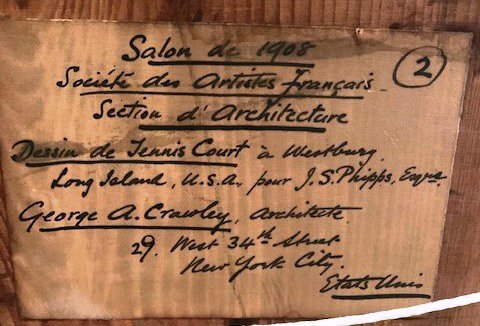 Salon de 1908
②
Société des Artistes français
Section d'Architecture
Dessin de Tennis Court à Westbury
Long Island, U.S.A., pour J.S. Phipps, Esqre.
George A. Crawley, Architecte.
29. West 34th Street
New York City.
Etats Unis